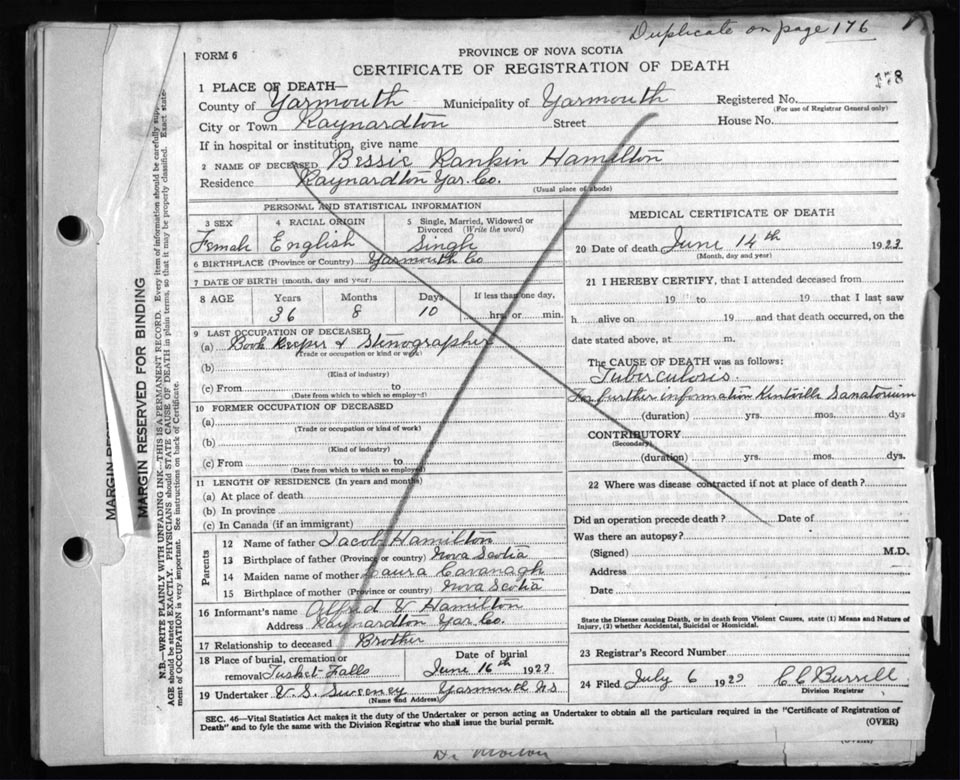 Duplicate on page 176
FORM 6
PROVINCE OF NOVA SCOTIA
CERTIFICATE OF REGISTRATION OF DEATH
1 PLACE OF DEATH—
County of Yarmouth Municipality of Yarmouth Registered No.
(For use of Registrar General only)
City or Town Raynardton Street House No.
If in hospital or institution, give name
2 NAME OF DECEASED Bessie Rankin Hamilton
Residence Raynardton Yar. Co.
(Usual place of abode)
PERSONAL AND STATISTICAL INFORMATION
3 SEX 4 RACIAL ORIGIN 5 Single, Married, Widowed or Divorced (Write the word)
Female English Single
6 BIRTHPLACE (Province or Country) Yarmouth Co
7 DATE OF BIRTH (month, day and year)
8 AGE Years Months Days If less than one day,
36 8 10 hrs. or min.
9 LAST OCCUPATION OF DECEASED
(a) Book Keeper & Stenographer
(Trade or occupation or kind of work)
(b)
(Kind of industry)
(c) From to
(Date from which to which so employed)
10 FORMER OCCUPATION OF DECEASED
(a)
(Trade or occupation or kind of work)
(b)
(Kind of industry)
(c) From to
(Date from which to which so employed)
11 LENGTH OF RESIDENCE (In years and months)
(a) At place of death
(b) In province
(c) In Canada (if an immigrant)
Parents
12 Name of father Jacob Hamilton
13 Birthplace of father (Province or country) Nova Scotia
14 Maiden name of mother Laura Cavanagh
15 Birthplace of mother (Province or country) Nova Scotia
16 Informant's name Alfred V Hamilton
Address Raynardton Yar. Co.
17 Relationship to deceased Brother
18 Place of burial, cremation or removal Tusket Falls
Date of burial
June 16th 1923
19 Undertaker V. S. Sweeney Yarmouth NS
(Name and Address)
MEDICAL CERTIFICATE OF DEATH
20 Date of death June 14th 1923
(Month, day and year)
21 I HEREBY CERTIFY, that I attended deceased from
19 to 19 that I last saw
h alive on 19 and that death occurred, on the
date stated above, at m.
The CAUSE OF DEATH was as follows:
Tuberculosis.
For further information Kentville Sanatorium
(duration) yrs. mos. dys
CONTRIBUTORY
(Secondary)
(duration) yrs. mos. dys.
22 Where was disease contracted if not at place of death?
Did an operation precede death? Date of
Was there an autopsy?
(Signed) M.D.
Address
Date
State the Disease causing Death, or in death from Violent Causes, state (1) Means and Nature of
Injury, (2) whether Accidental, Suicidal or Homicidal.
23 Registrar's Record Number
24 Filed July 6 1923 C C Burrell
Division Registrar
SEC. 46—Vital Statistics Act makes it the duty of the Undertaker or person acting as Undertaker to obtain all the particulars required in the "Certificate of Registration of
Death" and to fyle the same with the Division Registrar who shall issue the burial permit. (OVER)
MARGIN RESERVED FOR BINDING
N.B.—WRITE PLAINLY WITH UNFADING INK—THIS IS A PERMANENT RECORD. Every item of information should be carefully supp
AGE should be stated EXACTLY. PHYSICIANS should STATE CAUSE OF DEATH in plain terms, so that it may be properly classified. Exact state-
ment of OCCUPATION is very important. See instructions on back of Certificate.